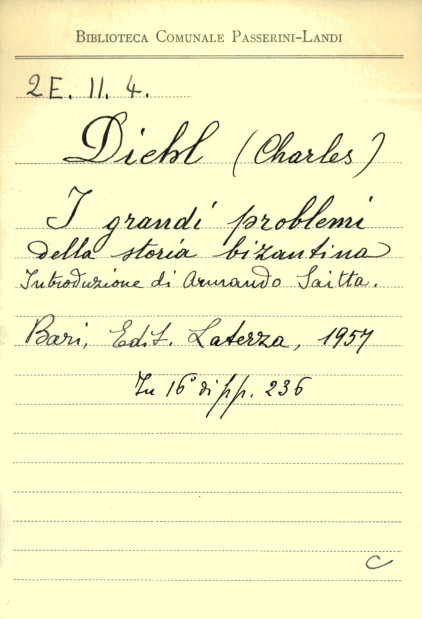 BIBLIOTECA COMUNALE PASSERINI-LANDI
2E. II. 4.
Diehl (Charles)
I grandi problemi
della storia bizantina
Introduzione di Armando Saitta.
Bari, Edit. Laterza, 1957
In 16° di pp. 236
C